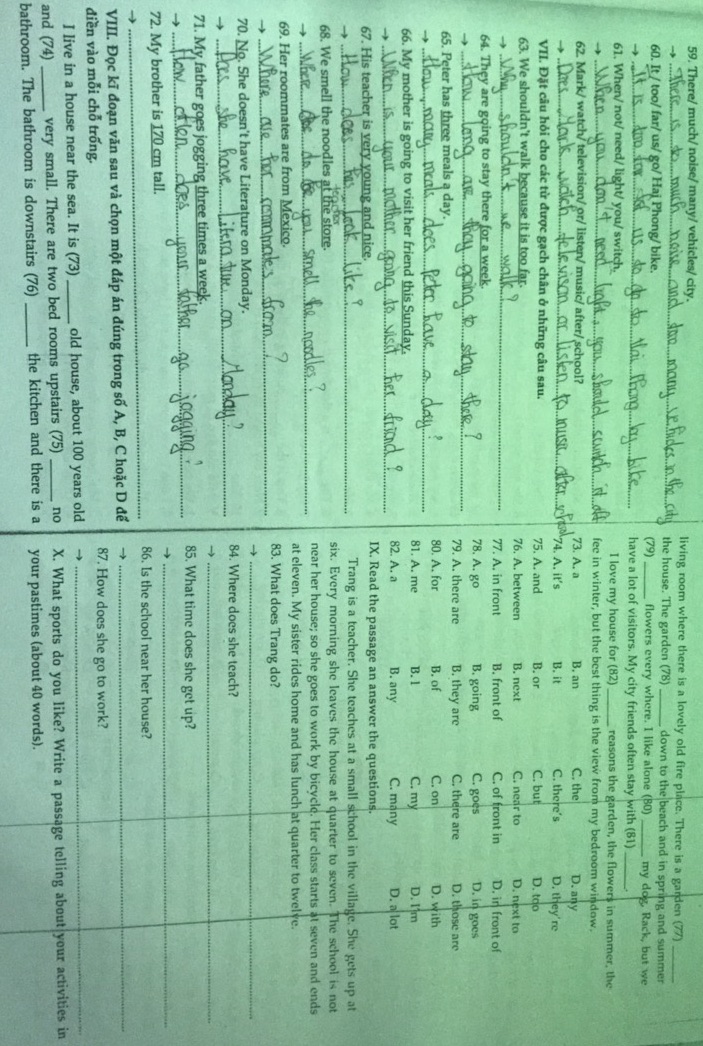 59. There/ much/ noise/ many/ vehicles/ city.
→ There is so much noise and too many vehicles in the city
60. It/ too/ far/ us/ go/ Hai Phong/ bike.
→ It is too far for us to go to Hai Phong by bike
61. When/ not/ need/ light/ you/ switch.
→ When you don't need light, you should switch it off
62. Mark/ watch/ television/ or/ listen/ music/ after/ school?
→ Does Mark watch television or listen to music after school
VII. Đặt câu hỏi cho các từ được gạch chân ở những câu sau.
63. We shouldn't walk because it is too far.
→ Why shouldn't we walk?
64. They are going to stay there for a week.
→ How long are they going to stay there?
65. Peter has three meals a day.
→ How many meals does Peter have a day?
66. My mother is going to visit her friend this Sunday.
→ When is your mother going to visit her friend?
67. His teacher is very young and nice.
→ How does his teacher look like?
68. We smell the noodles at the store.
→ Where do you smell the noodles?
69. Her roommates are from Mexico.
→ Where are her roommates from?
70. No. She doesn't have Literature on Monday.
→ Does she have Literature on Monday?
71. My father goes jogging three times a week.
→ How often does your father go jogging?
72. My brother is 170 cm tall.
→
VIII. Đọc kĩ đoạn văn sau và chọn một đáp án đúng trong số A, B, C hoặc D để
điền vào mỗi chỗ trống.
I live in a house near the sea. It is (73) ______ old house, about 100 years old
and (74) ______ very small. There are two bed rooms upstairs (75) ______ no
bathroom. The bathroom is downstairs (76) ______ the kitchen and there is a
living room where there is a lovely old fire place. There is a garden (77) ______
the house. The garden (78) ______ down to the beach and in spring and summer
(79) ______ flowers every where. I like alone (80) ______ my dog, Rack, but we
have a lot of visitors. My city friends often stay with (81) ______.
I love my house for (82) ______ reasons the garden, the flowers in summer, the
fee in winter, but the best thing is the view from my bedroom window.
73. A. a B. an C. the D. any
74. A. it's B. it C. there's D. they're
75. A. and B. or C. but D. too
76. A. between B. next C. near to D. next to
77. A. in front B. front of C. of front in D. in front of
78. A. go B. going C. goes D. in goes
79. A. there are B. they are C. there are D. those are
80. A. for B. of C. on D. with
81. A. me B. I C. my D. I'm
82. A. a B. any C. many D. a lot
IX. Read the passage an answer the questions.
Trang is a teacher. She teaches at a small school in the village. She gets up at
six. Every morning she leaves the house at quarter to seven. The school is not
near her house; so she goes to work by bicycle. Her class starts at seven and ends
at eleven. My sister rides home and has lunch at quarter to twelve.
83. What does Trang do?
→
84. Where does she teach?
→
85. What time does she get up?
→
86. Is the school near her house?
→
87. How does she go to work?
→
X. What sports do you like? Write a passage telling about your activities in
your pastimes (about 40 words).